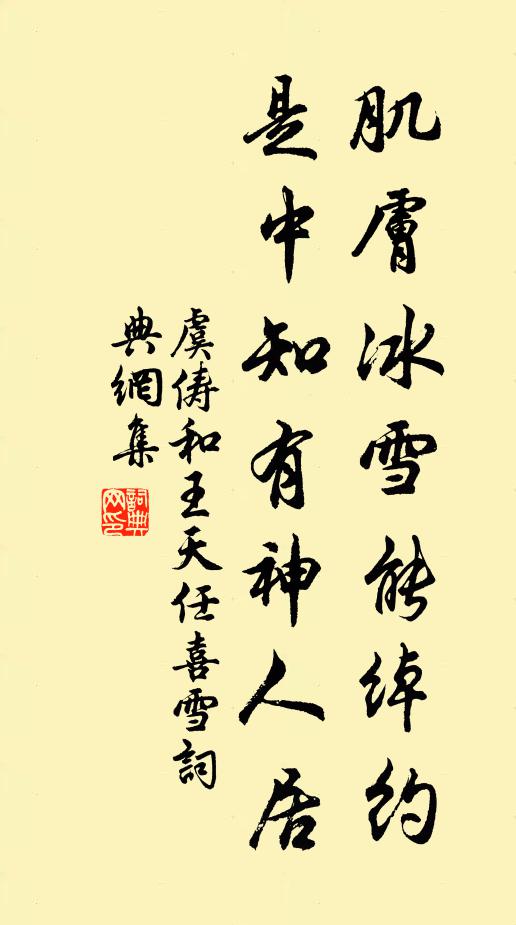 肌膚冰雪能綽約
是中知有神人居
虞儔和王天任喜雪詞
典網集
詞典
网印